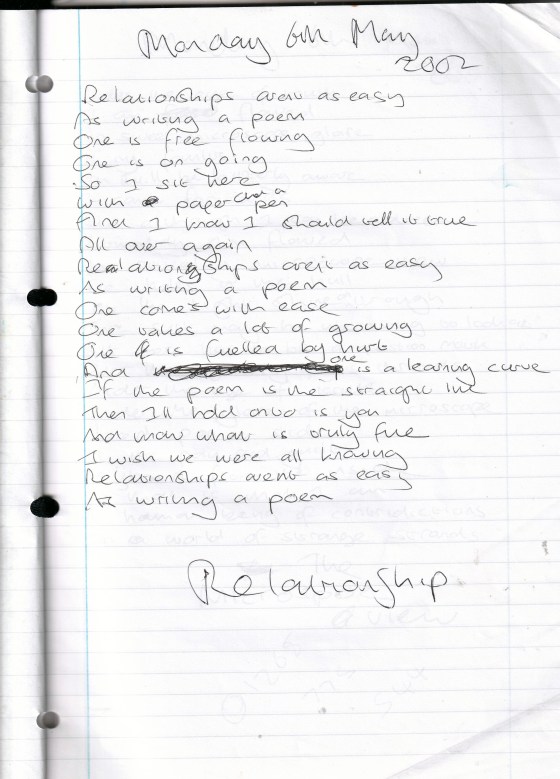 Monday 6th May
2002
Relationships arent as easy
As writing a poem
One is free flowing
One is on going
So I sit here
With paper and a pen
And I know I should tell it true
All over again
Relationships aren't as easy
As writing a poem
One comes with ease
One takes a lot of growing
One is fuelled by hurt
And one is a learning curve
If the poem is the straight line
Then I'll hold onto is you
And know what is truly fine
I wish we were all knowing
Relationships arent as easy
As writing a poem
Relationship